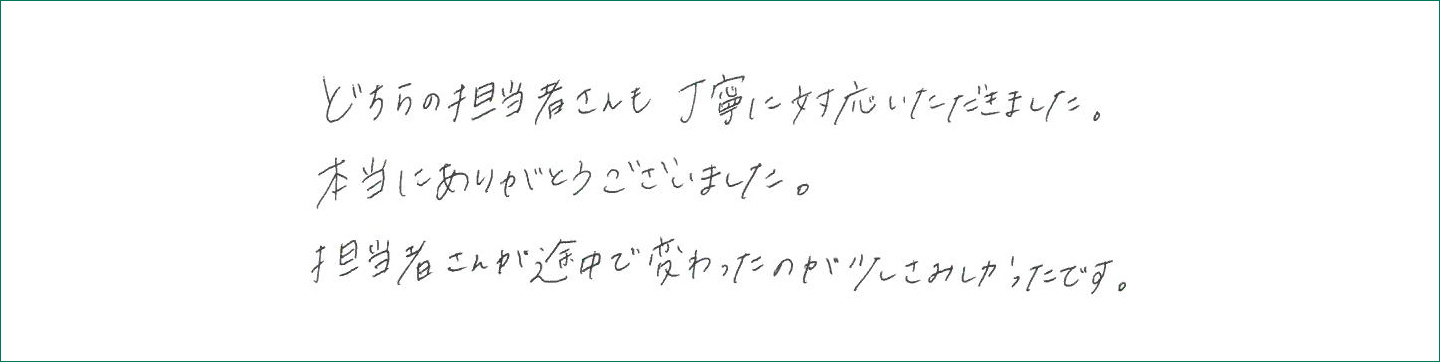 どちらの担当者さんも丁寧に対応いただきました。
本当にありがとうございました。
担当者さんが途中で変わったのが少しさみしかったです。